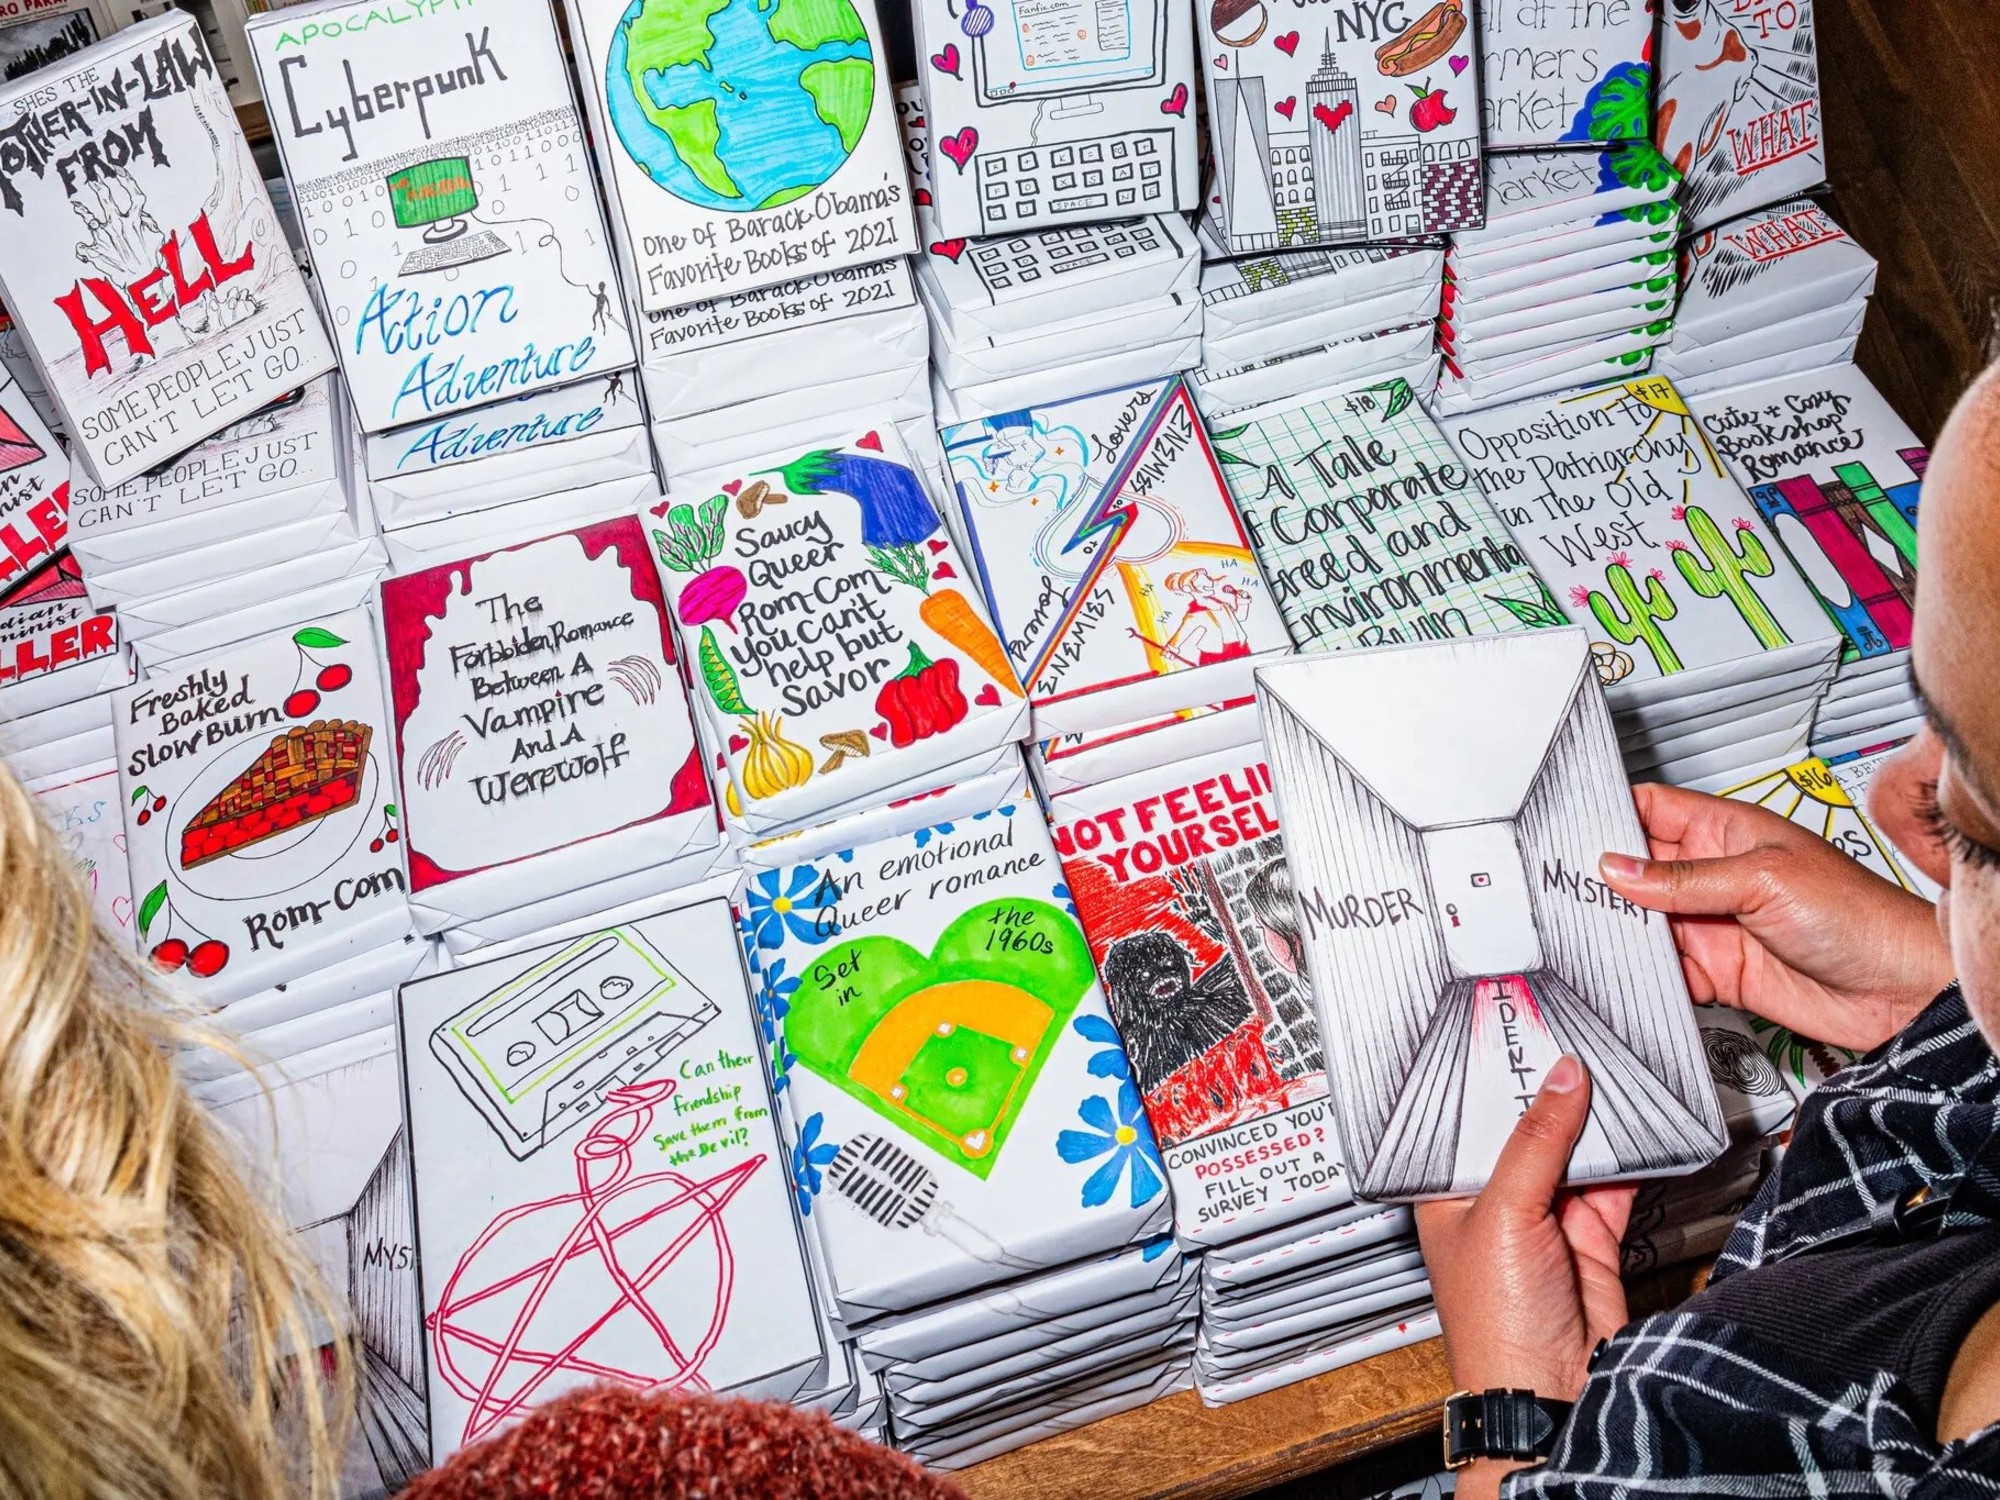 SHES THE
MOTHER-IN-LAW
FROM
HELL
SOME PEOPLE JUST
CAN'T LET GO...
SOME PEOPLE JUST
CAN'T LET GO...
APOCALYPTI
Cyberpunk
Action
Adventure
Adventure
One of Barack Obama's
Favorite Books of 2021
One of Barack Obama's
Favorite Books of 2021
Fanfic.com
SPACE
SPACE
NYC
at the
rmers
arket
arket
TO
WHAT
WHAT
minist
LLER
Freshly
Baked
Slow Burn
Rom-Com
The
Forbidden Romance
Between A
Vampire
And A
Werewolf
Saucy
Queer
Rom-Com
you can't
help but
Savor
Lovers
ENEMIES
to
Lovers
ENEMIES
HA
HA
HA
HA
$18
A Tale
of Corporate
Greed and
Environmental
Ruin
$17
Opposition to
the Patriarchy
in The Old
West
Cute + Cozy
Bookshop
Romance
$16
Can their
friendship
save them from
the Devil?
An emotional
Queer romance
Set
in
the
1960s
NOT FEELI
YOURSEL
CONVINCED YOU'
POSSESSED?
FILL OUT A
SURVEY TODA
MURDER
MYSTERY
IDENT
MYS